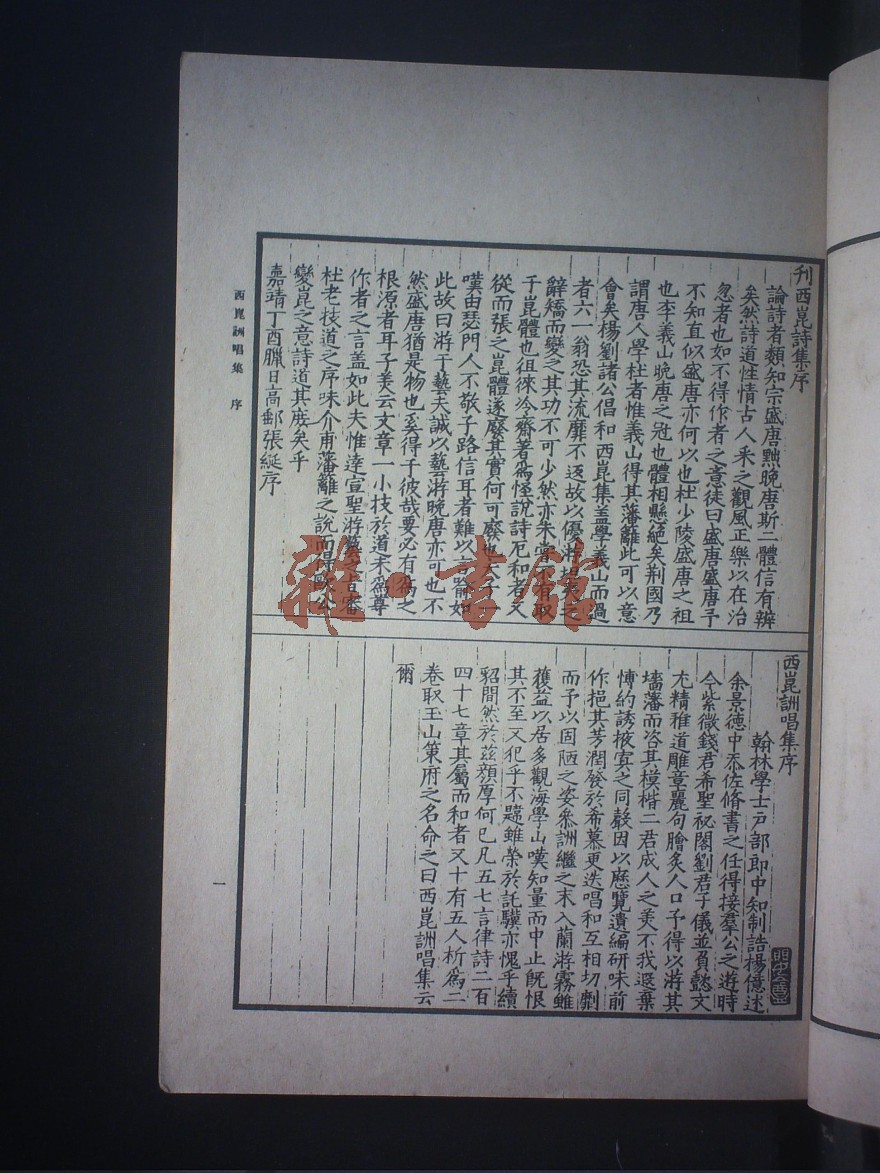 刊西崑詩集序
論詩者類知宗盛唐黜晚唐斯二體信有辨
矣然詩道性情古人采之觀風正樂以在治
忽者也如不得作者之意徒曰盛唐盛唐予
不知直似盛唐亦何以也杜少陵盛唐之祖
也李義山晚唐之冠也體相懸絕矣荆國乃
謂唐人學杜者惟義山得其藩籬此可以意
會矣楊劉諸公倡和西崑集盖學義山而過
者六一翁恐其流靡不返故以優游坦夷之
辭矯而變之其功不可少然亦未嘗不有取
于崑體也徂徠冷齋著為怪說詩厄和者又
從而張之崑體遂廢其實何可廢也夫子一
嘆由瑟門人不敬子路信耳者難以言喻如
此故曰游于藝夫誠以藝游晚唐亦可也不
然盛唐猶是物也奚得于彼哉要必有為之
根源者耳子美云文章一小技於道未為尊
作者之言盖如此夫惟達宣聖游藝之旨審
杜老技道之序味介甫藩籬之說而得歐公
變崑之意詩道其庶矣乎
嘉靖丁酉臘日高郵張綖序
西崑詶唱集序
翰林學士戸部郎中知制誥楊億述
余景德中忝佐脩書之任得接羣公之遊時
今紫微錢君希聖祕閣劉君子儀並負懿文
尤精雅道雕章麗句膾炙人口予得以游其
墻藩而咨其模楷二君成人之美不我遐棄
愽約誘掖寘之同聲因以歷覽遺編研味前
作挹其芳潤發於希慕更迭唱和互相切劘
而予以固陋之姿叅詶繼之末入蘭游霧雖
獲益以居多觀海學山嘆知量而中止旣恨
其不至又犯乎不韙雖榮於託驥亦愧乎續
貂間然於茲顔厚何已凡五七言律詩二百
四十七章其屬而和者又十有五人析為二
卷取玉山策府之名命之曰西崑詶唱集云
爾
西崑詶唱集 序
一
雜·書館